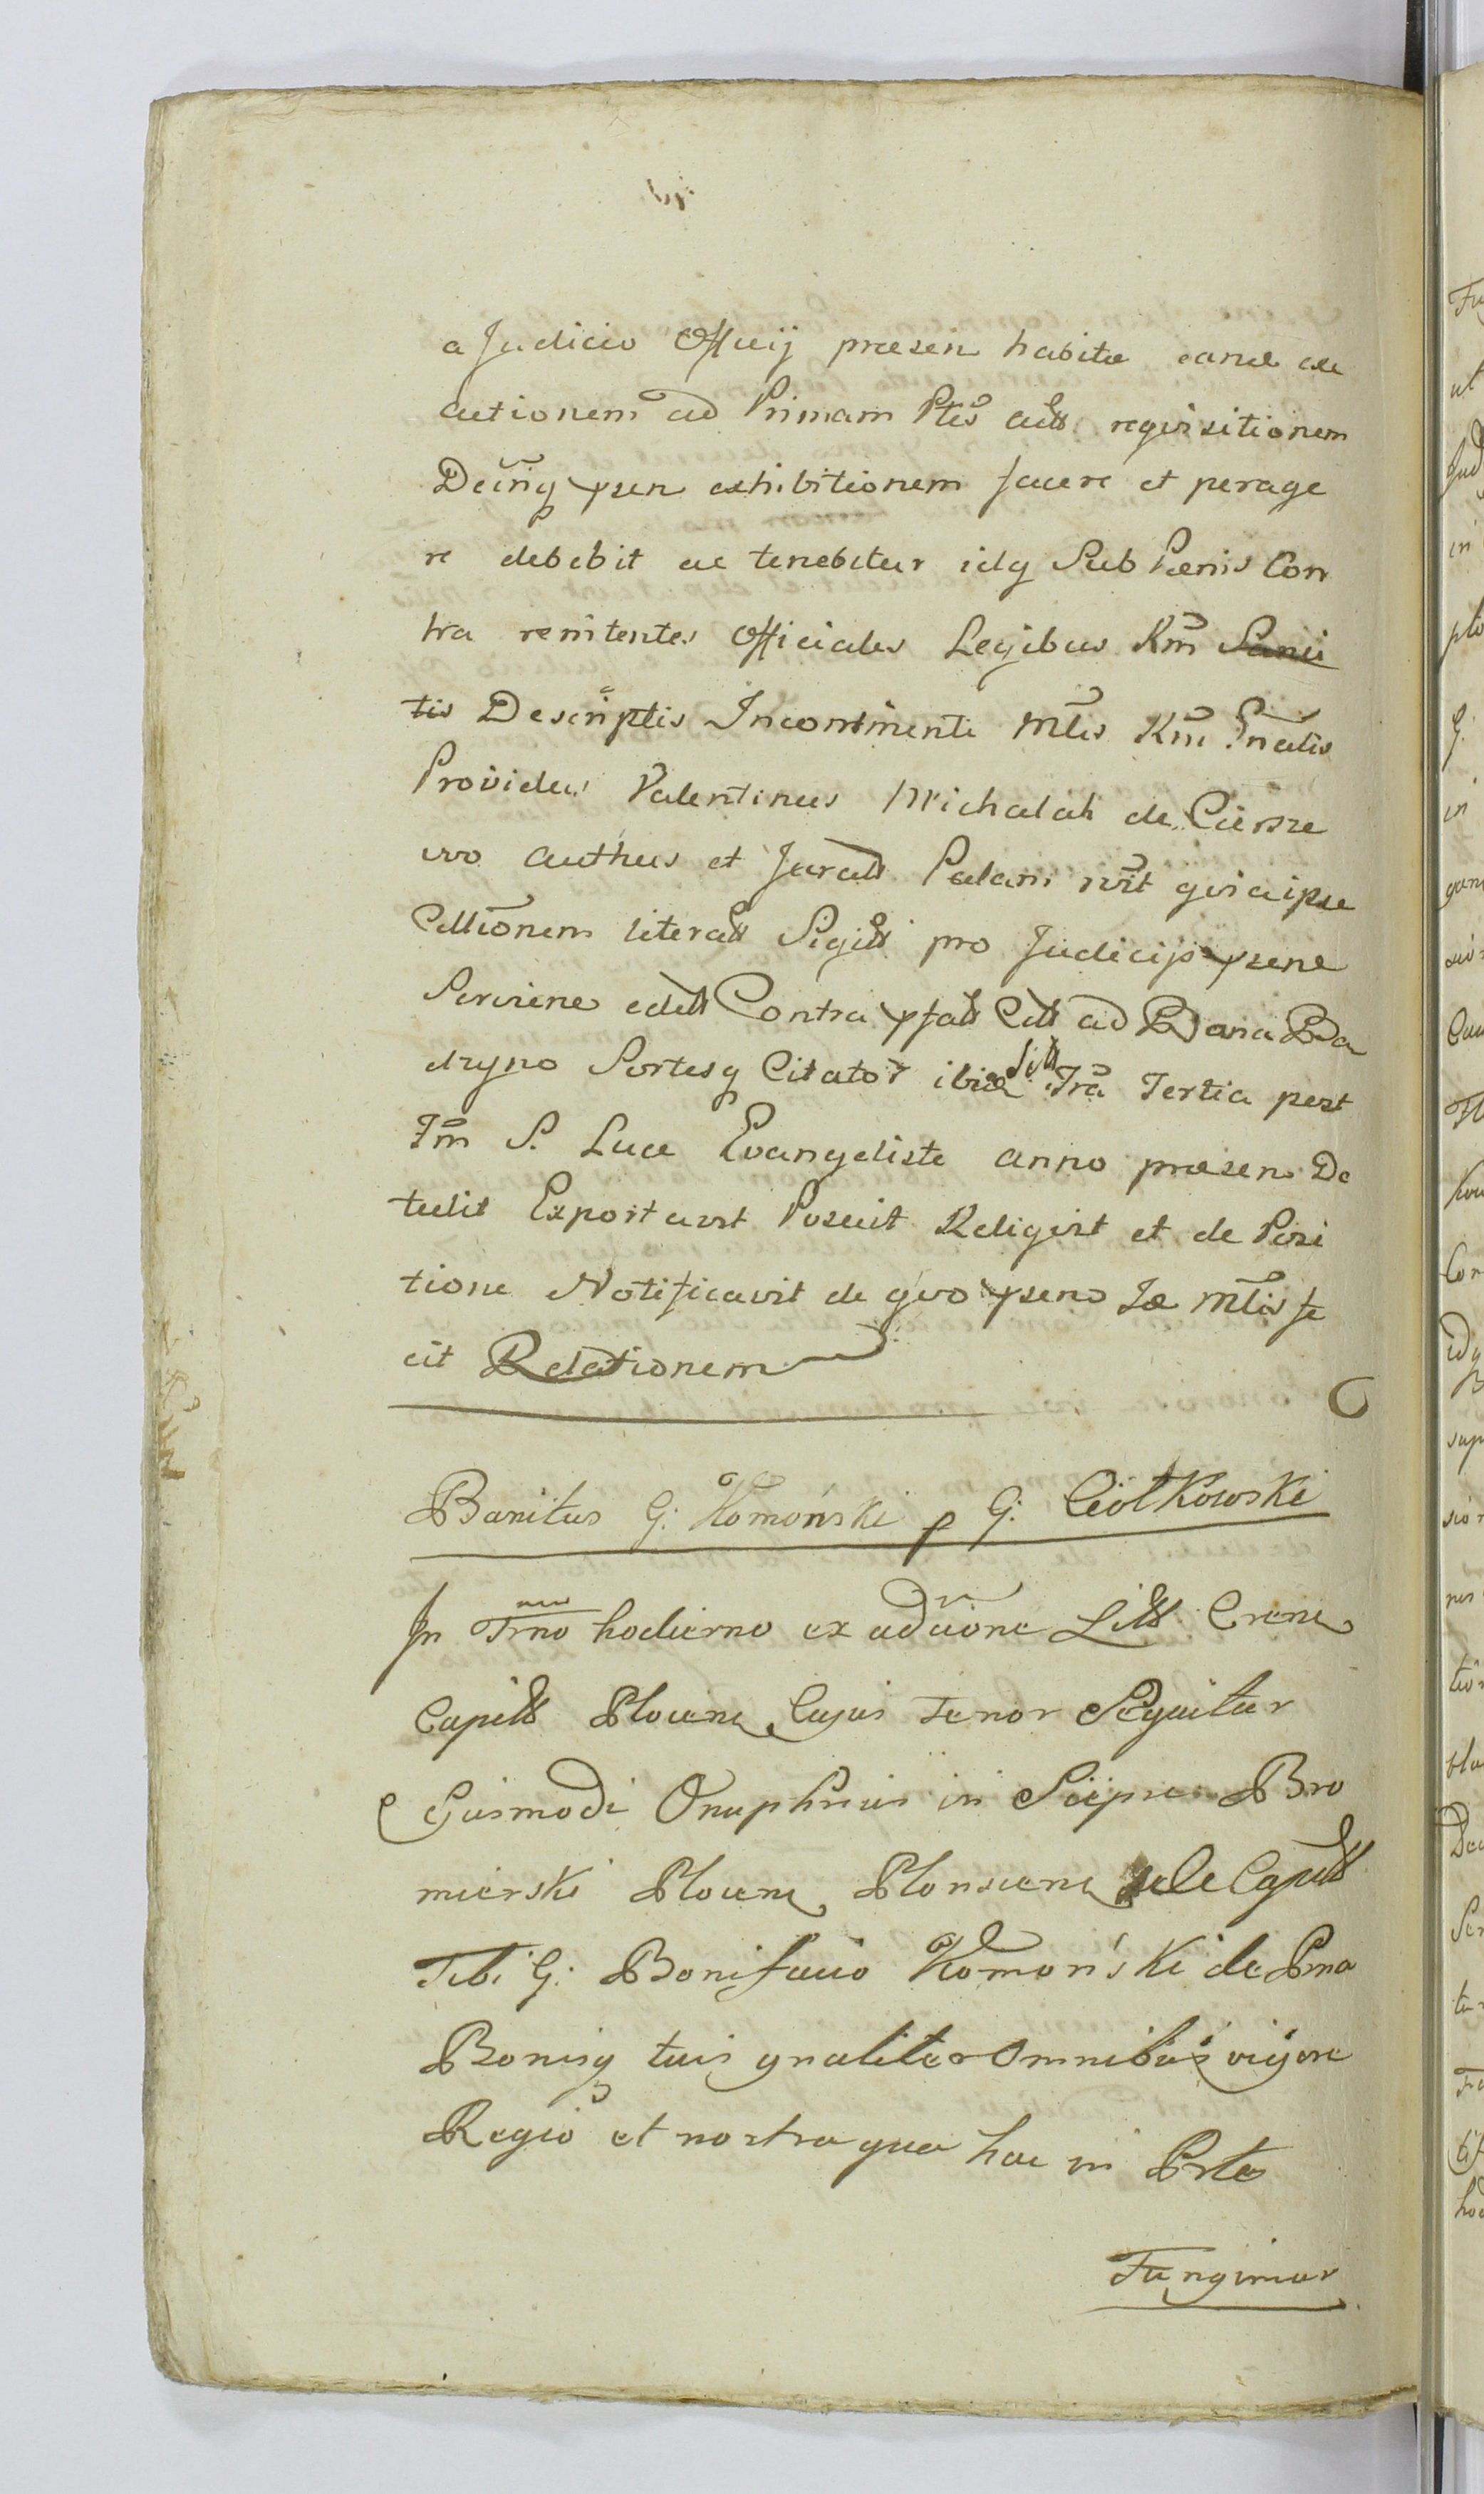 a Judicio Officij praesen habita eand exe
cutionem ad Primam Ptis requisitionem
exhibitionem facere et perage
re debebit ac tenebitur idq Sub Paenis Con
tra renitentes Officiales Legibus Rni Sanci
tis Descriptis Incontinenti Mlis Rni Gnalis
Providus Valentinus Michalak de
wo authus et Palam quia ipse
Cittionem literall Sigill pro Judicijs psene
edell Contra Cill ad Bona Ba
dzyno Sortesq Citator ibid Sill Fra Tertia post
Fm S. Luce Evangeliste anno praesen De
tulit Exportavit Posuit Reliqvit et de Posi
tione Notificavit de qvo psens Mlis fe
cit Relationem
Banitus G. Komoński p G. Ciołkowski
In Trno hodierno ex adcione Litt Crene
Capitt Plocene Cujus Tenor Seqvitur
Ejusmodi Onuphrius in Siepre Bro
mierski Plocene Plonscene Capitt
Tibi G. Bonifacio Komoński de Pma
Bonisq tuis gnaliter omnibus vigore
Regio et nostra qua hac in Prte
Fungimur